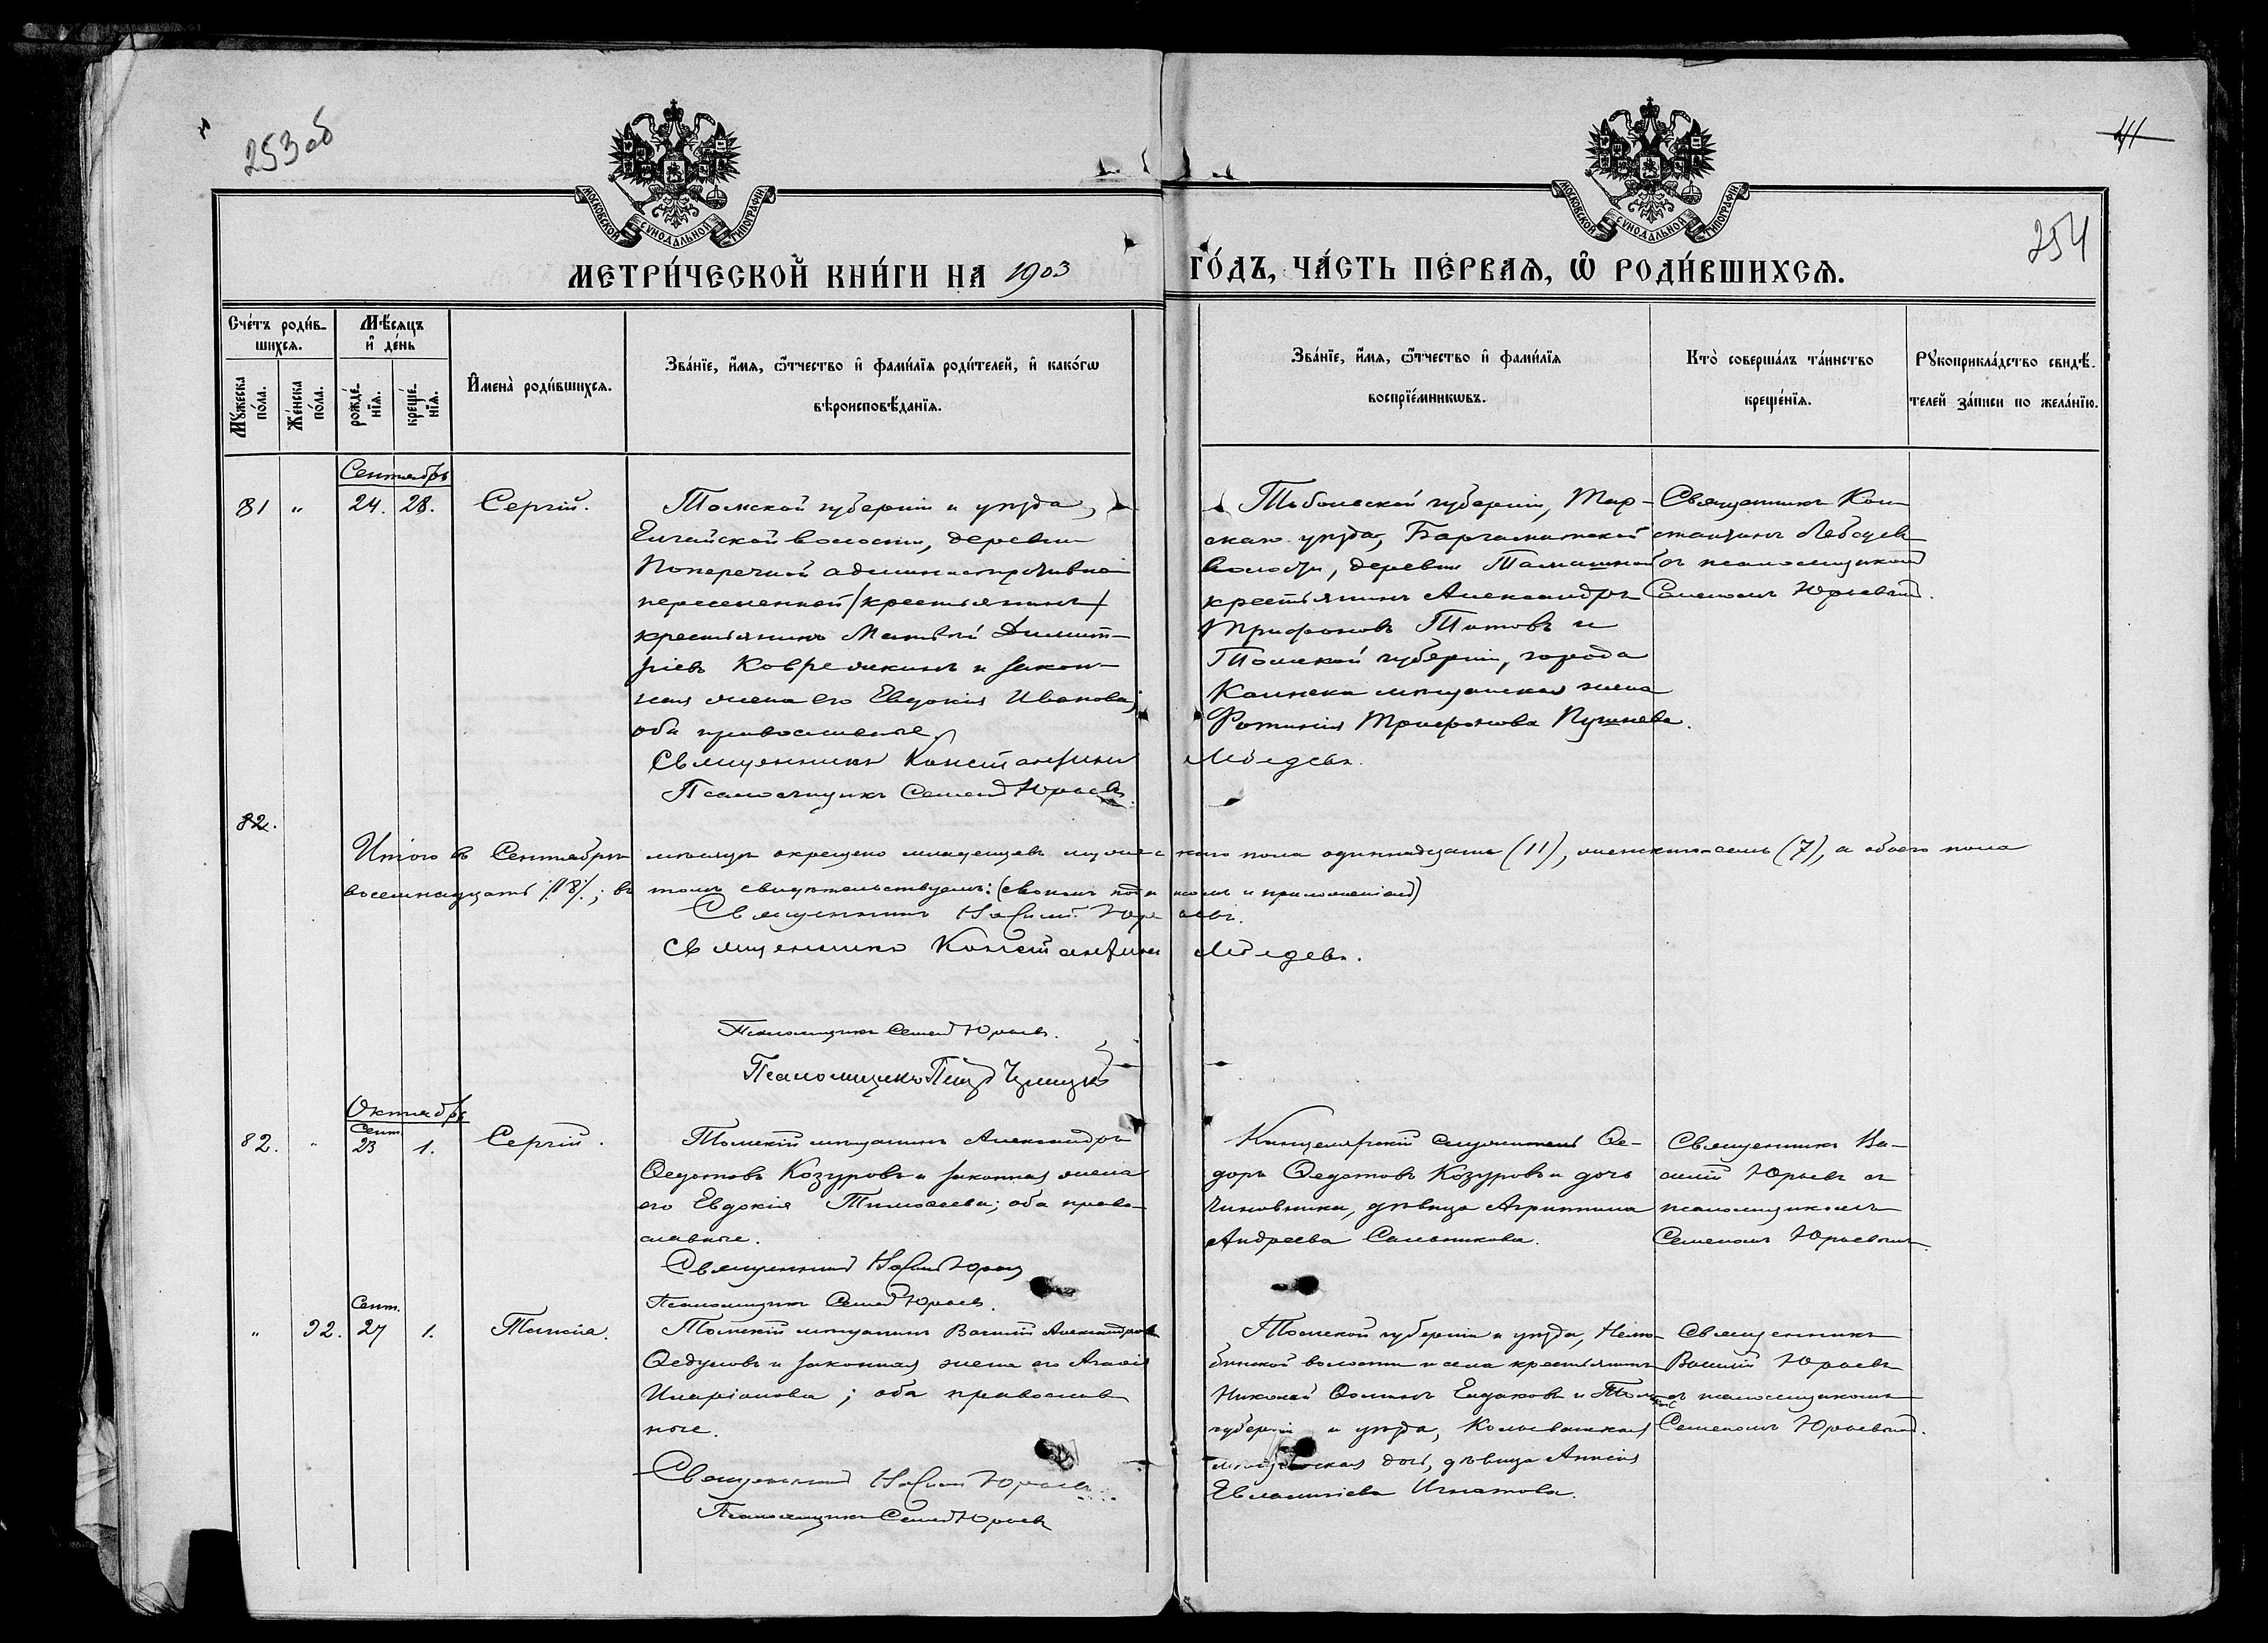 253 об
41
254
МОСКОВСКОЙ СѴНОДАЛЬНОЙ ТИПОГРАФІИ
МОСКОВСКОЙ СѴНОДАЛЬНОЙ ТИПОГРАФІИ
МЕТРИ́ЧЕСКОЙ КНИ́ГИ НА 1903
ГО́ДЪ, ЧА́СТЬ ПЕ́РВАѦ, Ѿ РОДИ́ВШИХСѦ.
Сче́тъ роди́в-
шихсѧ.
Мꙋжеска по́ла.
Же́нска по́ла.
Мѣ́сѧцъ
и де́нь
рожде́-
нїѧ.
креще́-
нїѧ.
Имена̀ роди́вшихсѧ.
Зва́нїе, и́мѧ, ѻ́тчество и фами́лїѧ роди́телей, и како́гѡ
вѣроисповѣ́данїѧ.
Зва́нїе, и́мѧ, ѻ́тчество и фами́лїѧ
воспрїе́мникѡвъ.
Кто̀ соверша́лъ та́инство
креще́нїѧ.
Рꙋкоприкла́дство свидѣ́-
телей за́писи по жела́нїю.
Сентябрь
81 „ 24. 28. Сергій.
Томской губерніи и уѣзда,
Елгайской волости, деревни
Поперечной административно
переселенной /крестьянинъ/
крестьянинъ Матвѣй Димит-
ріевъ Коврежкинъ и закон-
ная жена его Евдокія Иванова;
оба православные.
Священникъ Константинъ Лебедевъ.
Псаломщикъ Семенъ Юрьевъ.
Тобольской губерніи, Тар-
скаго уѣзда, Баргаматской
волости, деревни
крестьянинъ Александръ
Трифоновъ Титовъ и
Томской губерніи, города
Каинска мѣщанская жена
Фотинія Трифонова Пушнева.
Священникъ Кон-
стантинъ Лебедев
съ псаломщикомъ
Семеномъ Юрьевымъ.
82.
Итого въ Сентябрѣ мѣсяцѣ окрещено младенцевъ мужескаго пола одиннадцать (11), женскаго-семь (7), а обоего пола
восемнадцать /18/; въ томъ свидѣтельствуемъ: (своимъ подписомъ и приложеніемъ)
Священникъ Василій Юрьевъ.
Священникъ Константинъ Лебедевъ.
Псаломщикъ Семенъ Юрьевъ.
Псаломщикъ Петръ
Октябрь
82. „ Сент. 23 1. Сергій.
Томскій мѣщанинъ Александръ
Ѳедотовъ Козуровъ и законная жена
его Евдокія Тимоѳеева; оба право-
славные.
Священникъ Василій Юрьевъ
Псаломщикъ Семенъ Юрьевъ.
Канцелярскій служитель Ѳе-
доръ Ѳедотовъ Козуровъ и дочь
чиновника, дѣвица Агриппина
Андреева Сальникова.
Священникъ Ва-
силій Юрьевъ съ
псаломщикомъ
Семеномъ Юрьевымъ.
„ 92. Сент. 27 1. Таисія.
Томскій мѣщанинъ Василій Александровъ
Ѳедуловъ и законная жена его Агаѳія
Иларіонова; оба православ
ные.
Священникъ Василій Юрьевъ
Псаломщикъ Семенъ Юрьевъ
Томской губерніи и уѣзда, Нелю-
бинской волости и села крестьянинъ
Николай Ѳоминъ Елдаковъ и Томской
губерніи и уѣзда, Колыванская
мѣщанская дочь, дѣвица Аннсія
Евлампіева Игнатова.
Священникъ
Василій Юрьевъ
съ псаломщикомъ
Семеномъ Юрьевымъ.